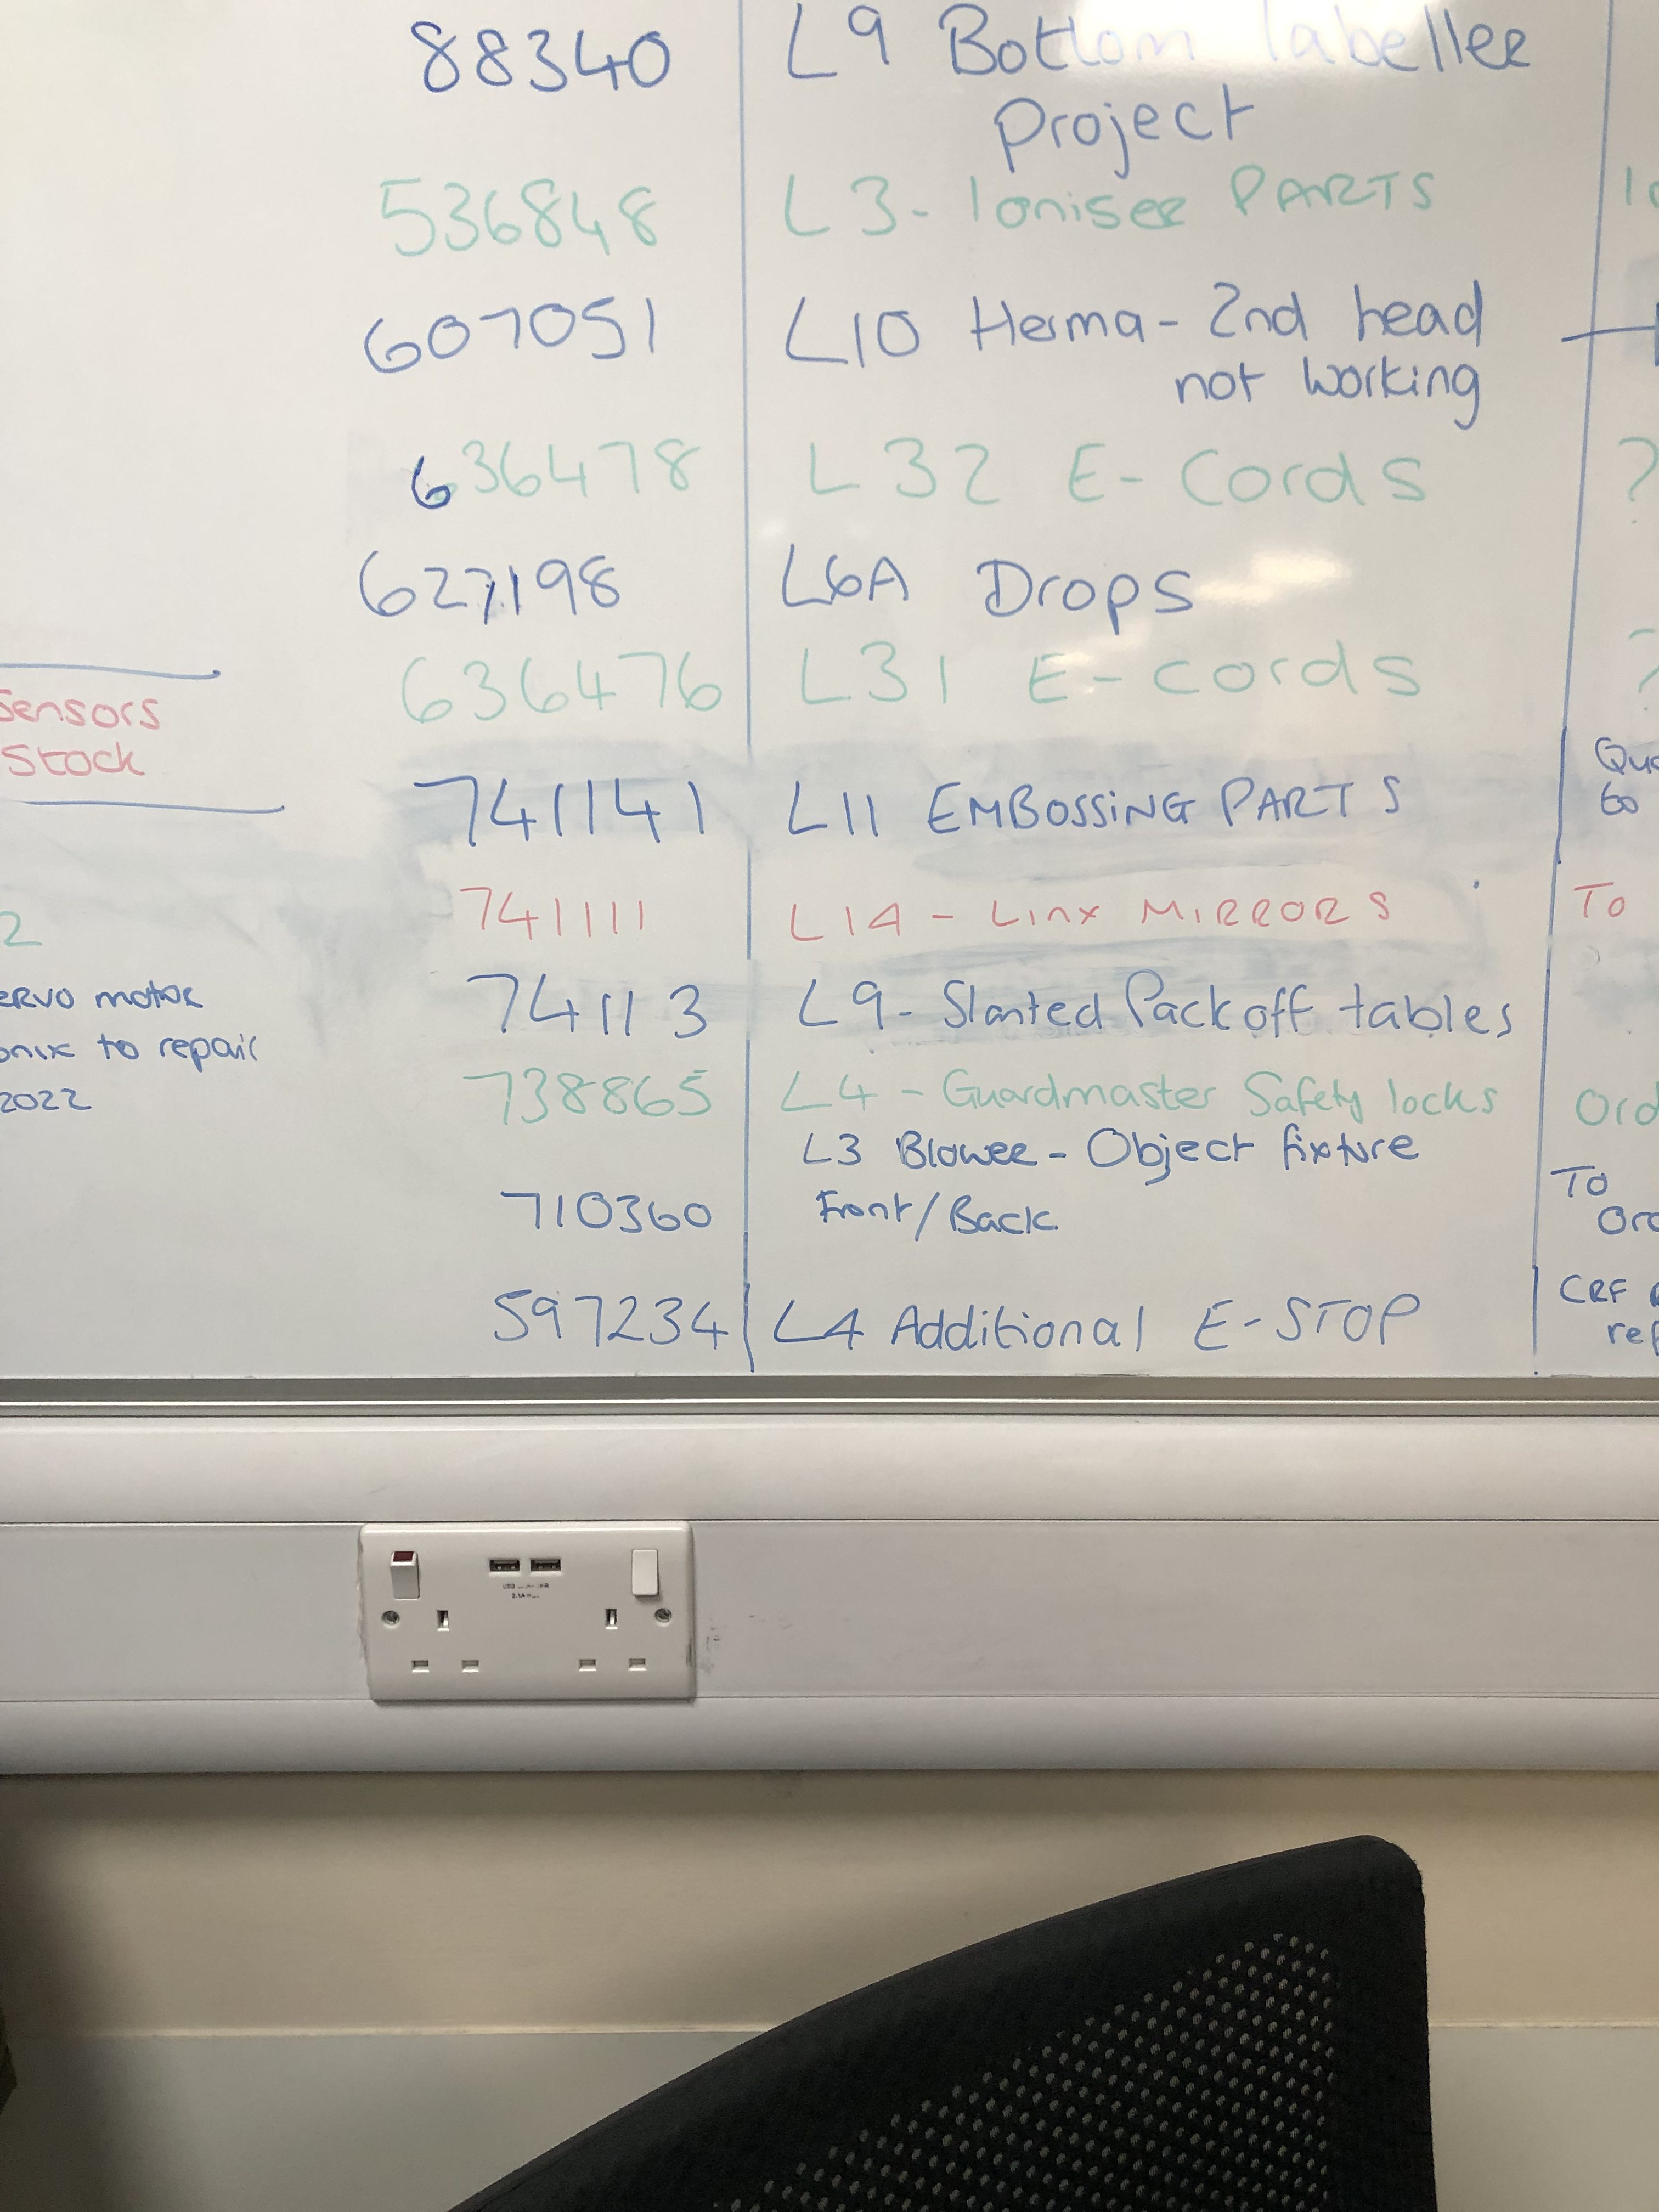 88340 L9 Bottom labeller
Project
536848 L3- Ioniser PARTS
607051 L10 Herma - 2nd head
not working
636478 L32 E-Cords ?
627198 L6A Drops
636476 L31 E-cords ?
Sensors
Stock
741141 L11 EMBOSSING PARTS
Go
741111 L14 - Linx MIRRORS To
2
74113 L9- Slanted Pack off tables
motor
to repair
2022
738865 L4 - Guardmaster Safety locks
L3 Blower - Object fixture
710360 Front/Back To
597234 L4 Additional E-STOP CRF